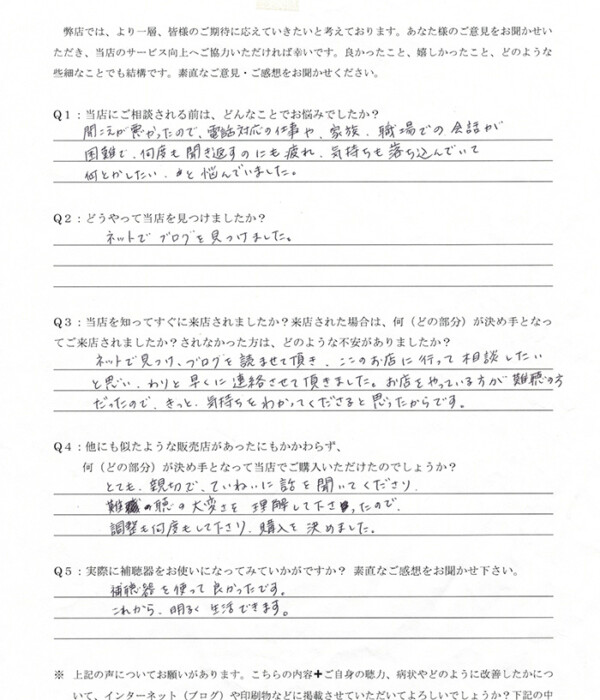 弊店では、より一層、皆様のご期待に応えていきたいと考えております。あなた様のご意見をお聞かせい
ただき、当店のサービス向上へご協力いただければ幸いです。良かったこと、嬉しかったこと、どのような
些細なことでも結構です。素直なご意見・ご感想をお聞かせください。
Q1：当店にご相談される前は、どんなことでお悩みでしたか？
聞こえが悪かったので、電話対応の仕事や、家族、職場での会話が
困難で、何度も聞き返すのにも疲れ、気持ちも落ち込んでいて
何とかしたい、と悩んでいました。
Q2：どうやって当店を見つけましたか？
ネットでブログを見つけました。
Q3：当店を知ってすぐに来店されましたか？来店された場合は、何（どの部分）が決め手となっ
てご来店されましたか？されなかった方は、どのような不安がありましたか？
ネットで見つけ、ブログを読ませて頂き、ここのお店に行って相談したい
と思い、わりと早くに連絡させて頂きました。お店をやっている方が難聴の方
だったので、きっと、気持ちをわかってくださると思ったからです。
Q4：他にも似たような販売店があったにもかかわらず、
何（どの部分）が決め手となって当店でご購入いただけたのでしょうか？
とても、親切で、ていねいに話を聞いてくださり、
難聴の大変さを理解して下さったので、
調整も何度もして下さり、購入を決めました。
Q5：実際に補聴器をお使いになってみていかがですか？ 素直なご感想をお聞かせ下さい。
補聴器を使って良かったです。
これから、明るく生活できます。
※ 上記の声についてお願いがあります。こちらの内容＋ご自身の聴力、病状やどのように改善したかにつ
いて、インターネット（ブログ）や印刷物などに掲載させていただいてよろしいでしょうか？下記の中